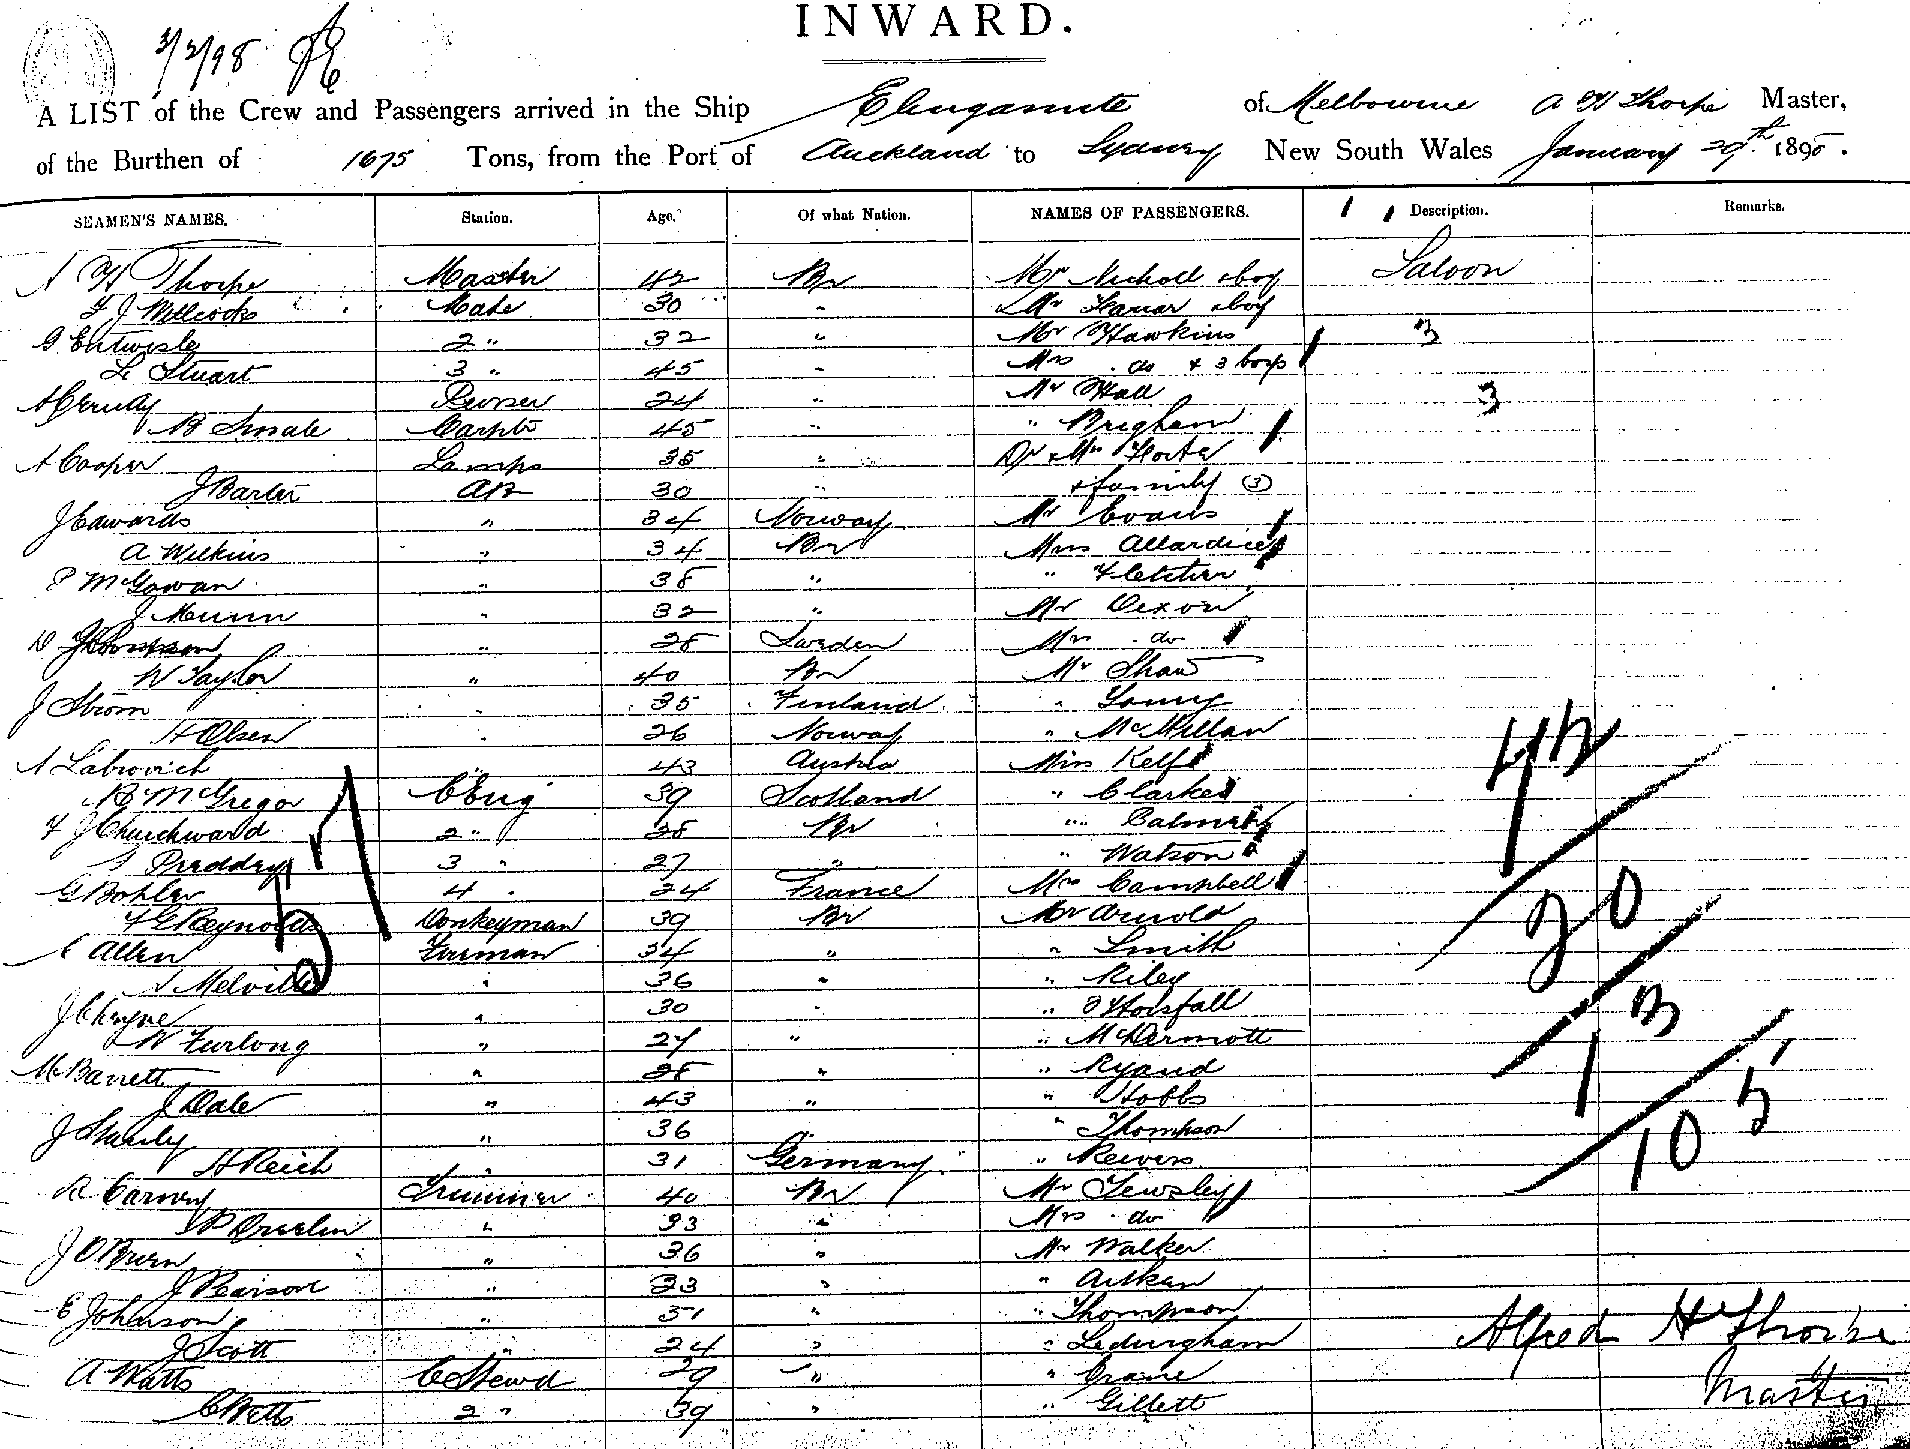 INWARD.
3/2/98
A LIST of the Crew and Passengers arrived in the Ship Elingamite of Melbourne A H Thorpe Master,
of the Burthen of 1675 Tons, from the Port of Auckland to Sydney New South Wales January 29th 189
SEAMEN'S NAMES. Station. Age. Of what Nation. NAMES OF PASSENGERS. Description. Remarks.
A H Thorpe Master 42 Br Mr Nicholl & boy Saloon
F J Willcocks Mate 30 " Mr & boy
G Entwisle 2 " 32 " Mr Hawkins 3
L Stuart 3 " 45 " Mrs do & 3 boys
Purser 24 " Mr Hall 3
Carptr 45 " " Brigham
A Cooper Lamps 35 " Dr & Mrs
J Barter AB 30 " & family (3)
J Edwards " 34 Norway Mr Evans
A Wilkins " 34 Br Mrs Allardice
P McGowan " 38 " " Fletcher
J Munn " 32 " Mr Dixon
D Thompson " 28 Sweden Mrs do
W Taylor " 40 Br Mr Shaw
J Strom " 35 Finland " Young
H Olsen " 26 Norway " McMillan 42
A Labrovich " 43 Austria Miss Kelf
R McGregor C Eng 39 Scotland " Clarke
F J Churchward 2 " 28 Br "
Preddey 3 " 27 " " Watson
G Bohler 4 " 24 France Mrs Campbell
F G Reynolds Donkeyman 39 Br Mr Arnold 20
Allen Fireman 34 " " Smith
A Melville " 36 " " Riley
J Cheyne " 30 " " Horsfall 13
W Furlong " 27 " " McDermott
M Barrett " 28 " " Ryand
J Dale " 43 " " Hobbs
J " 36 " " Thompson 105
H Reich " 31 Germany " Reivers
R Carney Trimmer 40 Br Mr Tewsley
P " 33 " Mrs do
J OBrien " 36 " Mr Walker
J Pearson " 33 " " Aitken
E Johnson " 31 " " Thompson
J Scott " 24 " " Ledingham
A Watts C Stewd 29 " " Crane
C Betts 2 " 39 " " Gillett
Alfred H Thorpe
Master